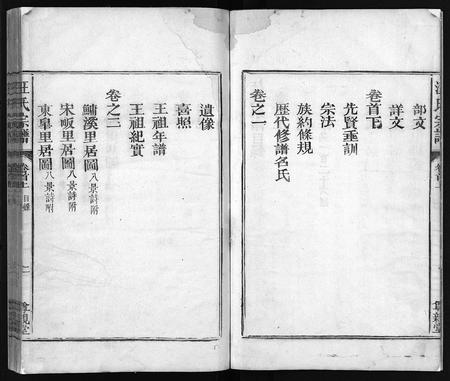 部文
詳文
卷首下
先賢垂訓
宗法
族約條規
歷代修譜名氏
卷之一
遺像
喜照
王祖年譜
王祖紀實
卷之二
鱅溪里居圖八景詩附
宋畈里居圖八景詩附
東皐里居圖八景詩附
汪氏宗譜
卷首上
目錄
二
尊親堂